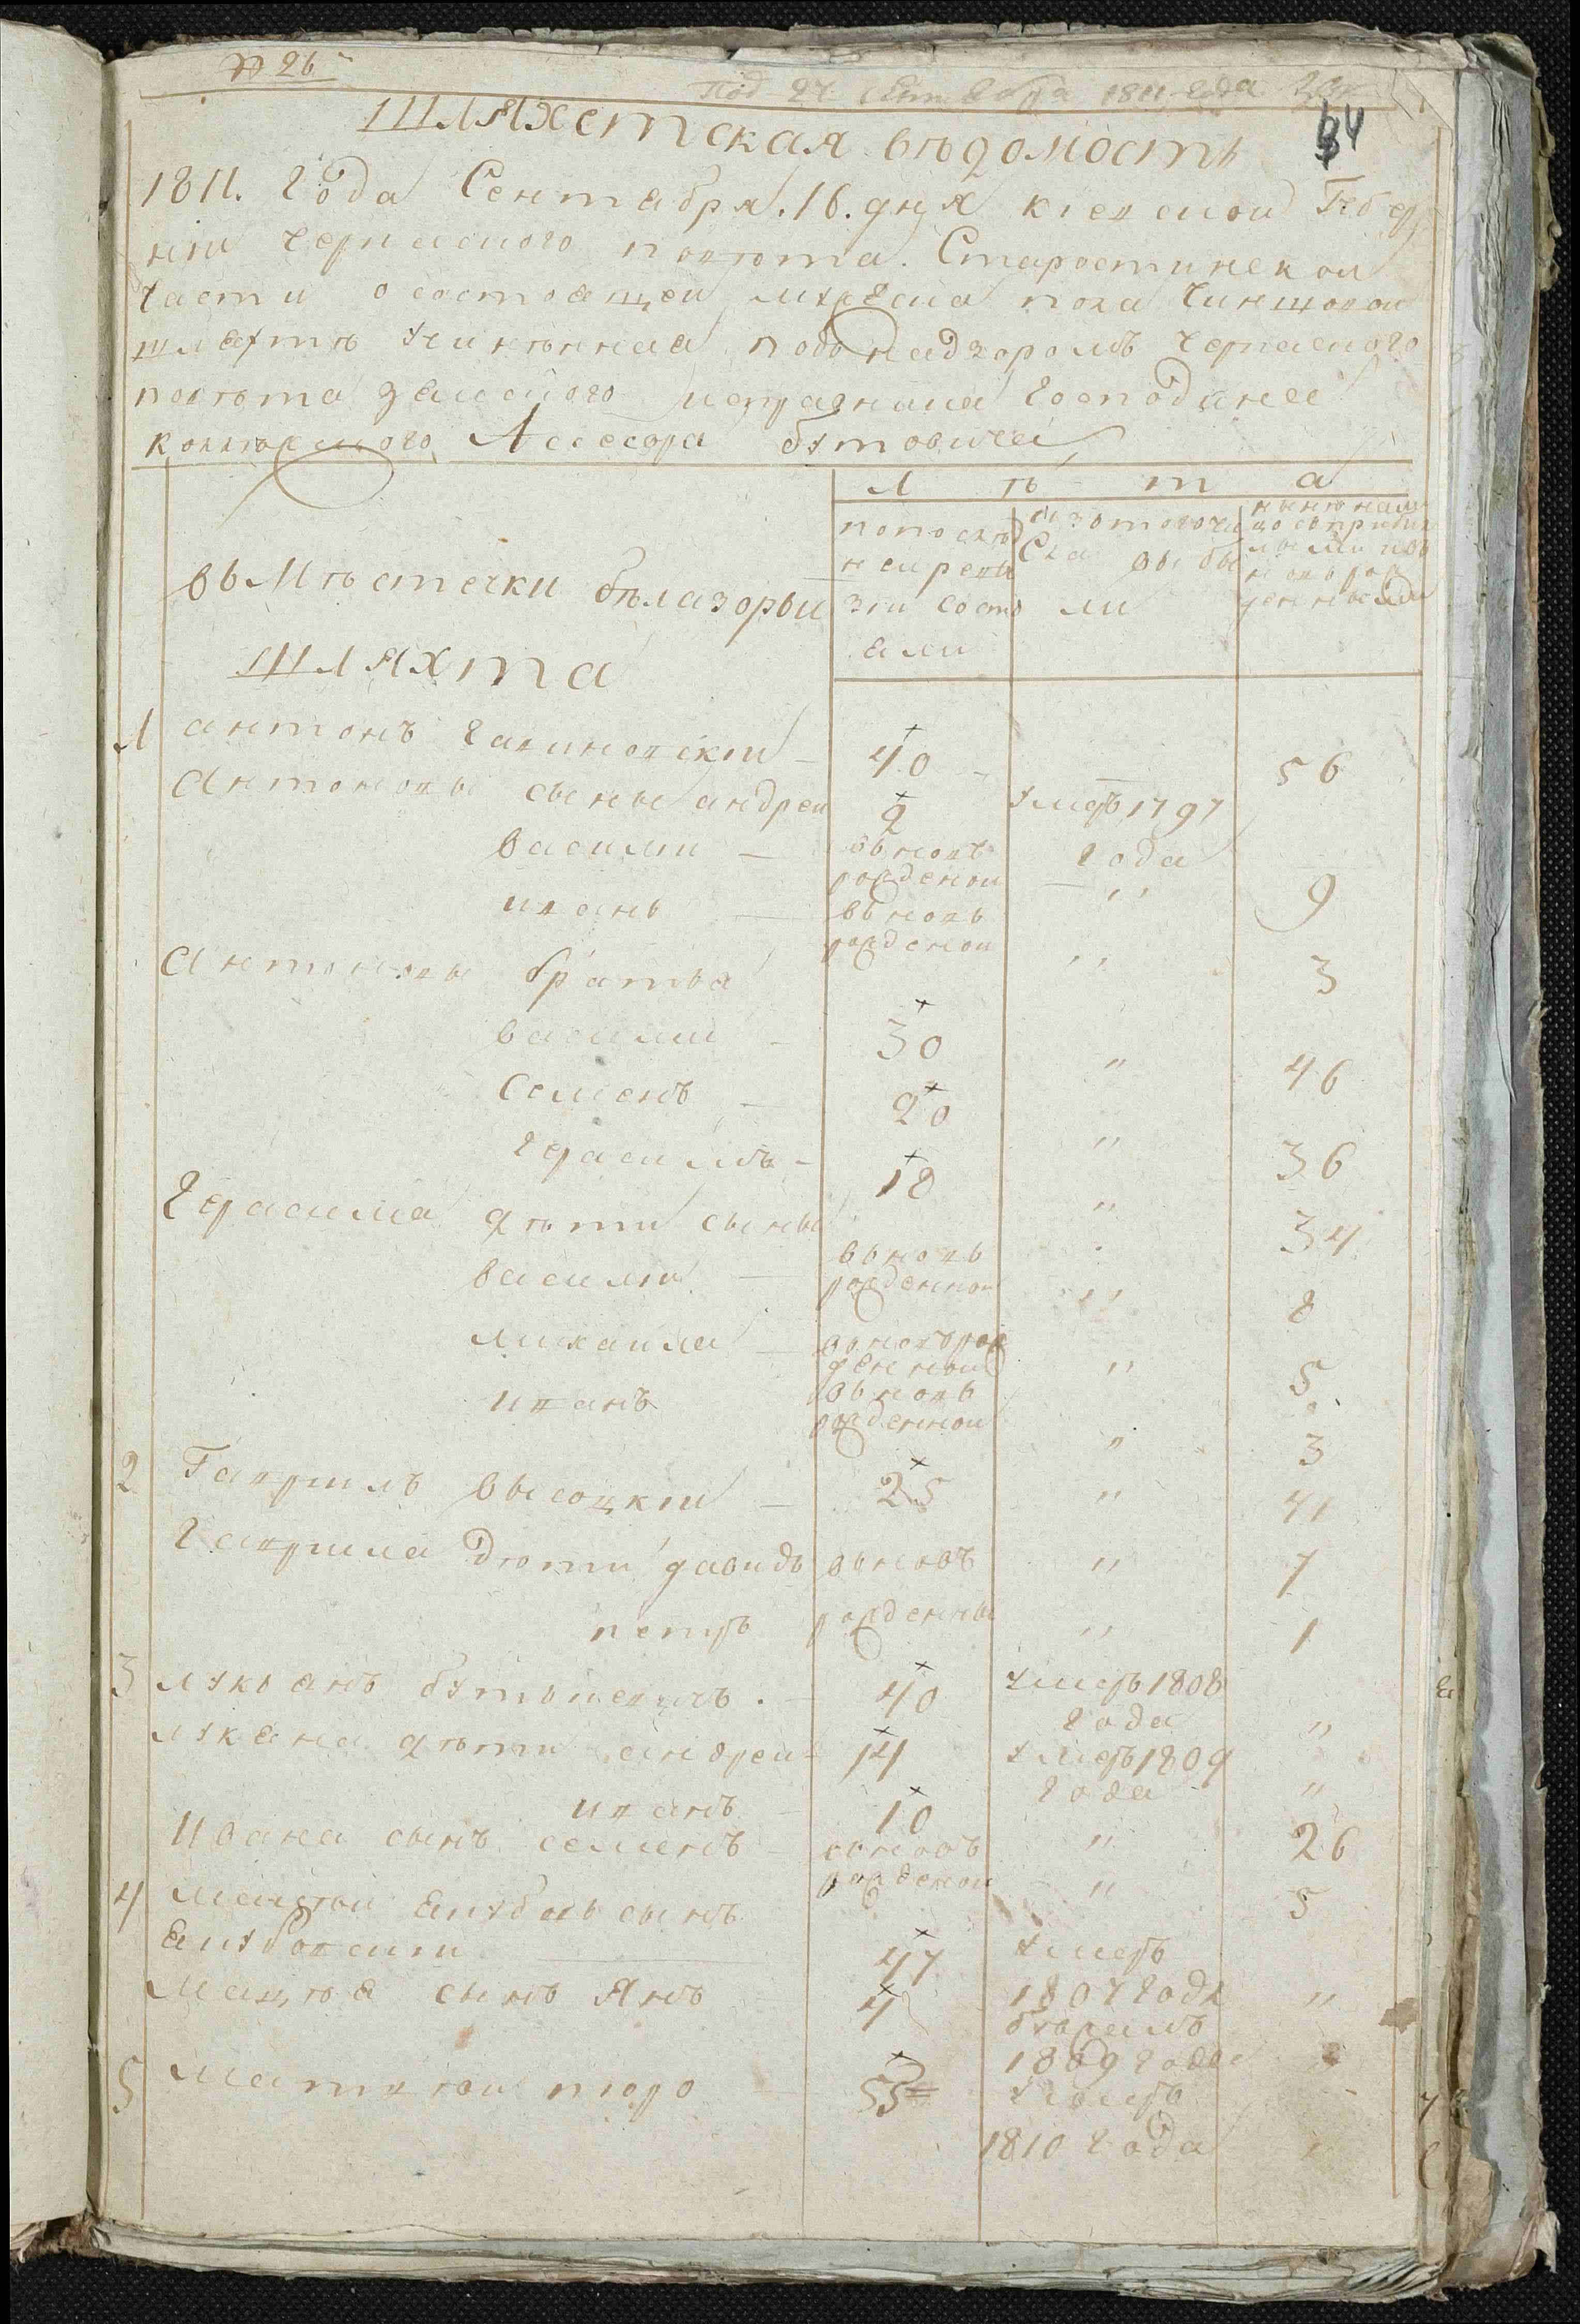 № 26
Под 27 Сентября 1811 года
64
Шляхетская вѣдомость
1811. Года Сентября. 16. дня киевской Губер
нии Черкаского повѣта. Старостинской
Части о состоящей пола Чиншовой
шляхтѣ учиненная подъ надзоромъ Черкаского
повѣта земского исправника Господина
коллежского Ассесора бутовича
Л ѣ т а
въ Мѣстечки бѣлазорьи
Шляхта
по послѣд
ней реви
зии состо
яли
изъ того числа
выбы
ли
нынѣ на лицо
съ прибы
лыми и въ
новь рож
денными
1 антонъ Галиновский - 40 - 56
Антоновы сыны андрей 2 умеръ 1797 года
василий - вьновь рожденой " 9
иванъ - вьновь рожденой " 3
Антоновы братья
василий - 30 " 46
Семенъ - 20 " 36
Герасимъ - 18 " 34
Герасима дѣти сыны
василий - вьновь рожденной " 8
михайла - вьновь рожденной " 5
иванъ вьновь рожденной " 3
2 Гаврилъ высоцкий - 25 " 41
Гаврила дѣти давидъ вьновь " 7
петръ рожденны " 1
3 лукьянъ бутькевичъ . - 40 умеръ 1808 года "
лукяна дѣти андрей - 14 умеръ 1809 года "
иванъ - 10 " 26
Ивана сынъ семенъ - вьновь рожденой " 5
4 мацѣй сынъ
47 умеръ 1807 года "
Мацѣя сынъ Янъ 4 1809 года "
5 Матвѣй 55 умеръ 1810 года "